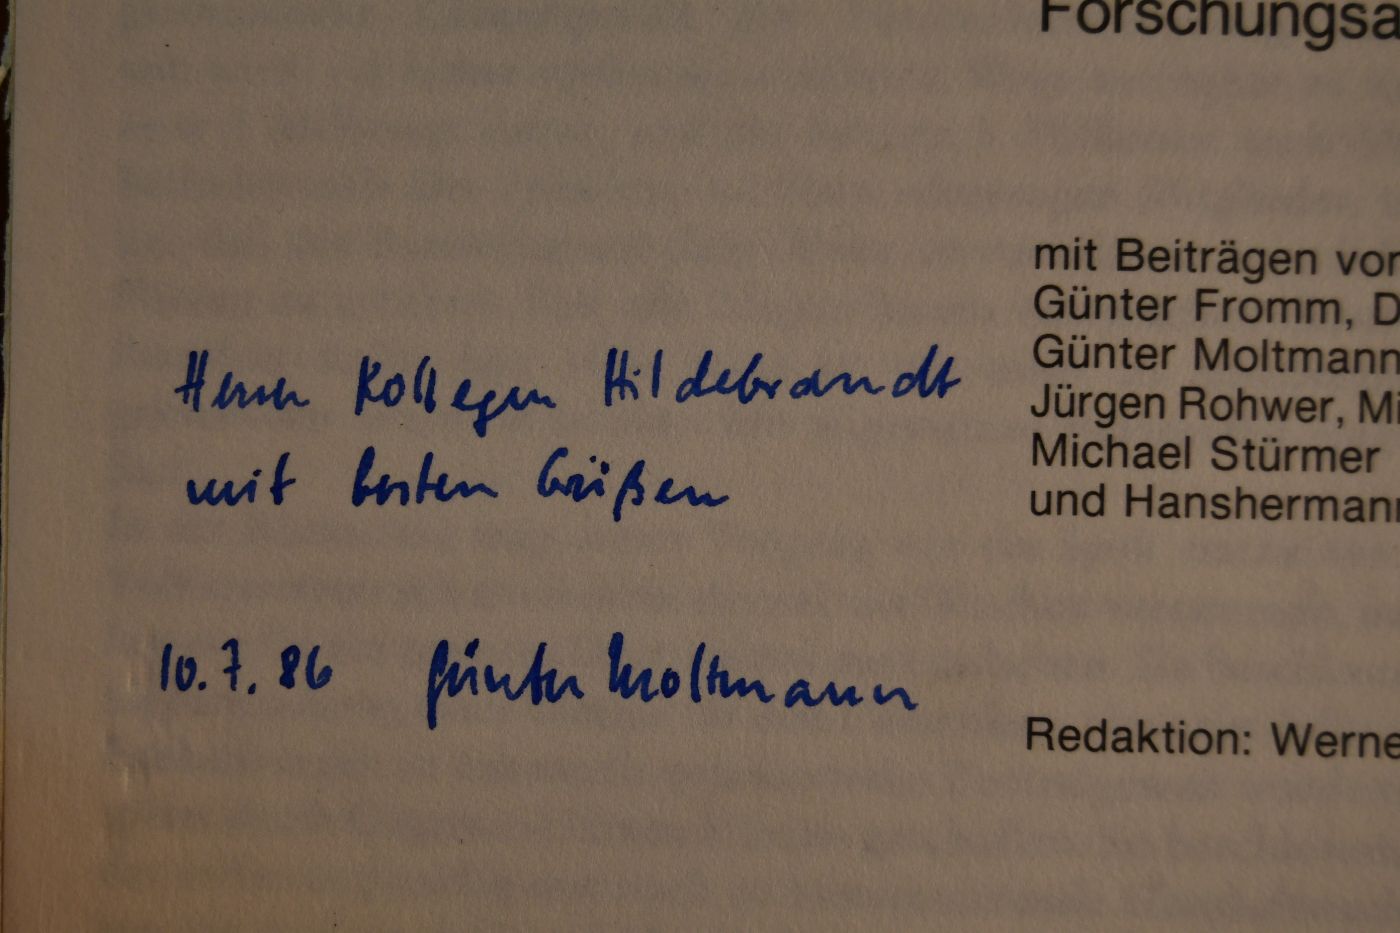 Forschungsa
mit Beiträgen vor
Günter Fromm, D
Günter Moltmann
Jürgen Rohwer, Mi
Michael Stürmer
und Hansherman
Herrn Kollegen Hildebrandt
mit besten Grüßen
10.7.86 Günter Moltmann
Redaktion: Werne